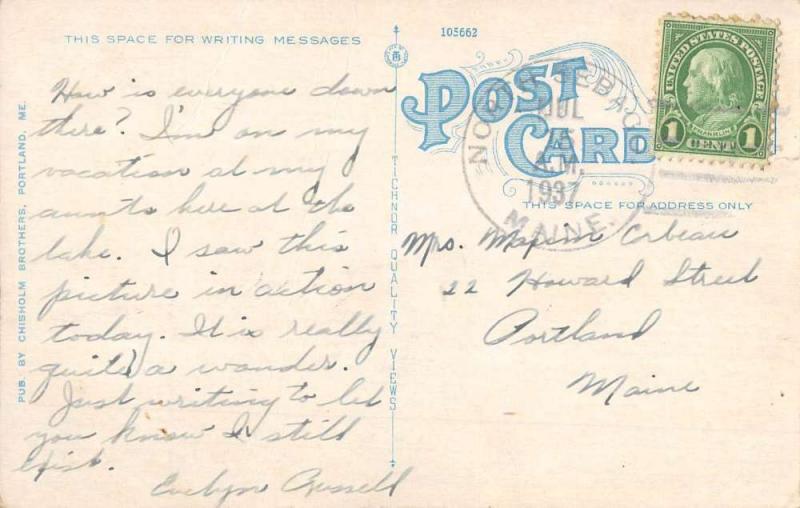 THIS SPACE FOR WRITING MESSAGES
How is everyone down
there? I'm on my
vacation at my
aunts here at the
lake. I saw this
picture in action
today. It is really
quite a wonder.
Just writing to let
you know I still
exist.
Evelyn Russell
PUB. BY CHISHOLM BROTHERS, PORTLAND, ME.
TICHNOR QUALITY VIEWS
105662
POST
CARD
UNITED STATES POSTAGE
FRANKLIN
1 CENT 1
NORTH SEBAGO
JUL
A.M.
1937
MAINE.
THIS SPACE FOR ADDRESS ONLY
Mrs. Corbeau
22 Howard Street
Portland
Maine